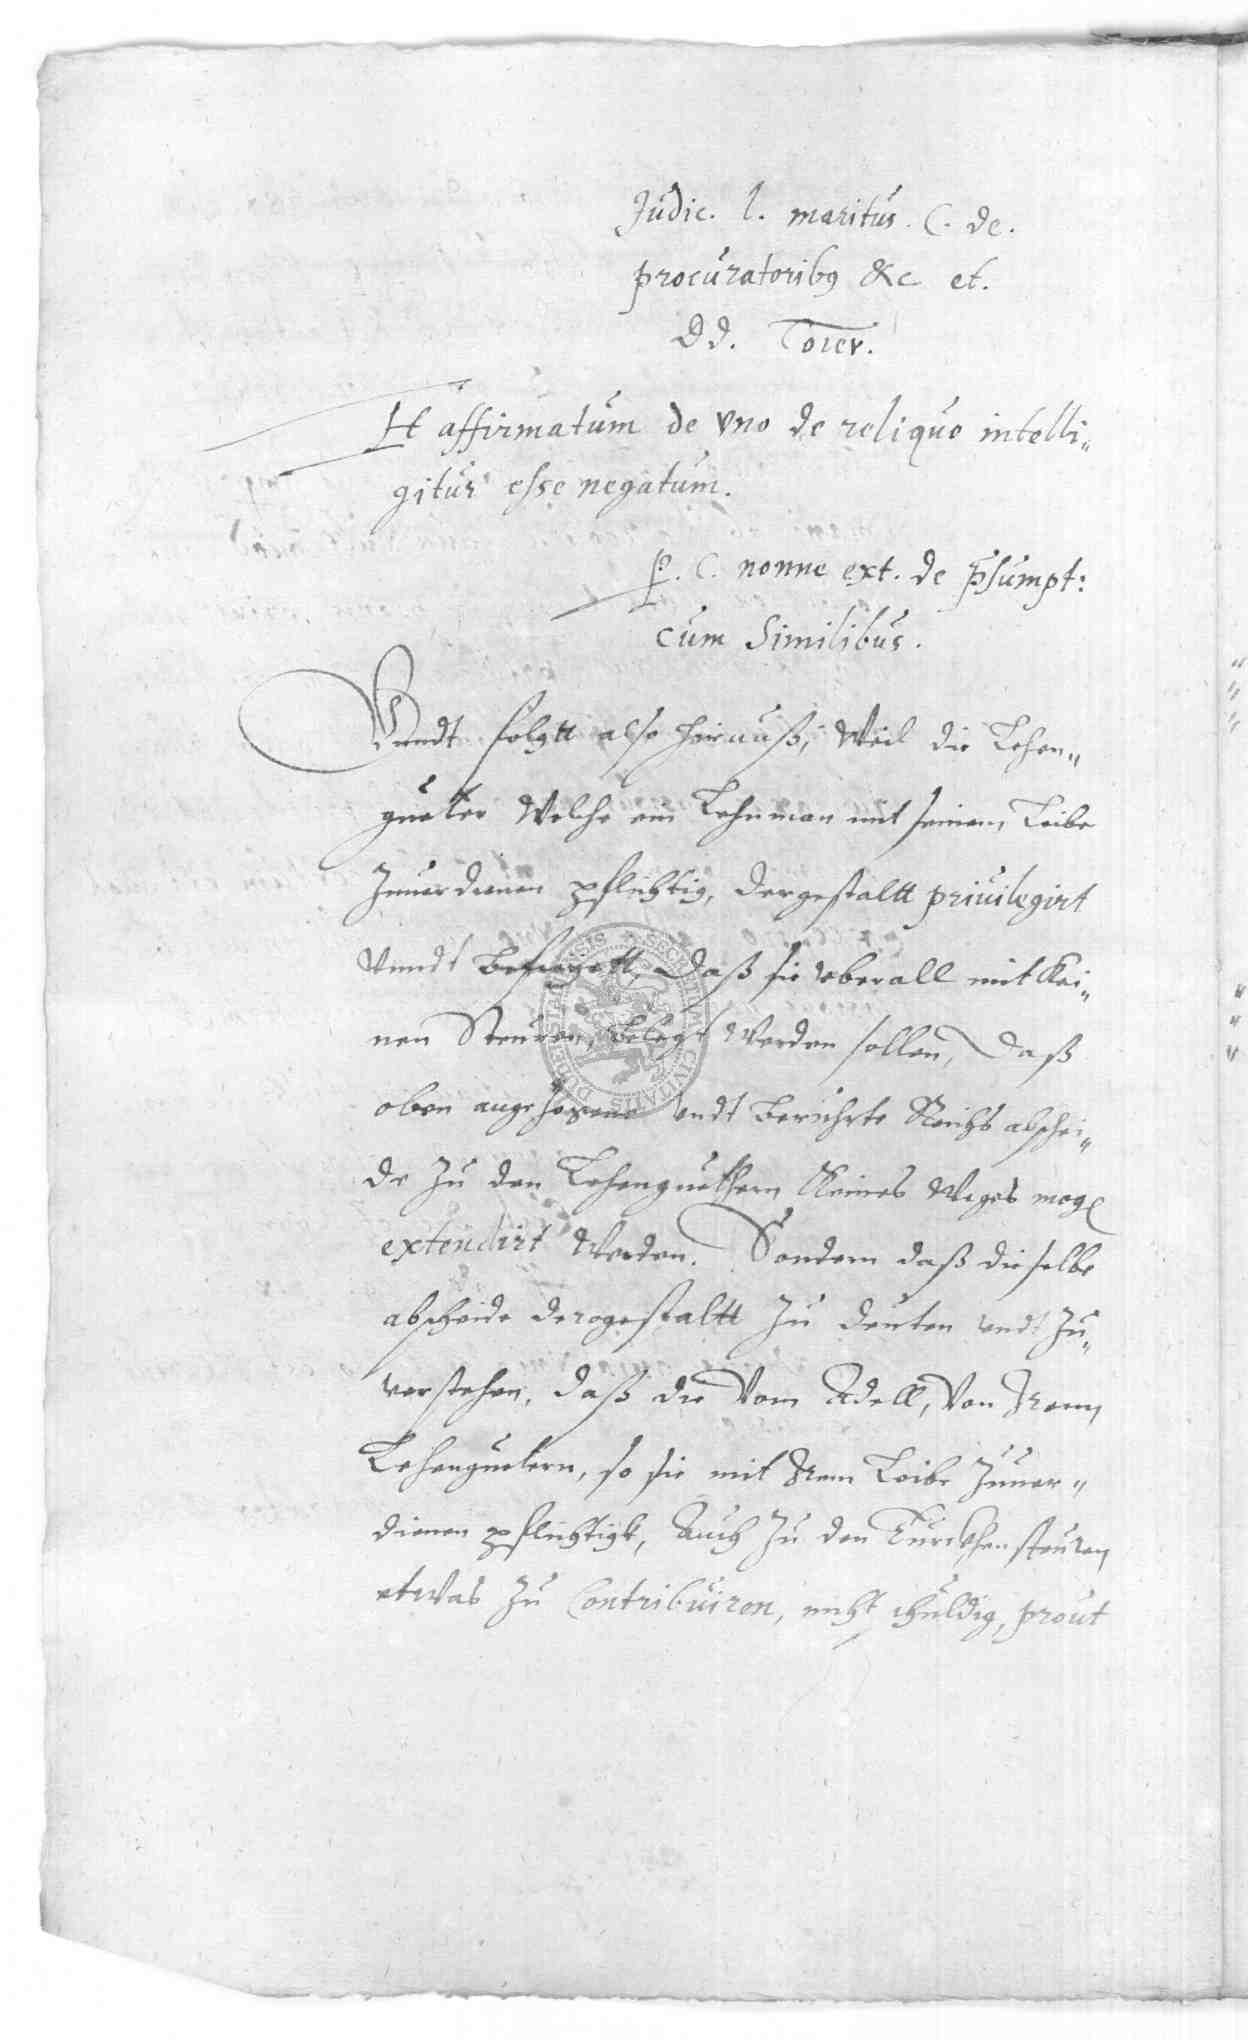 Judic. l. maritus. C. de.
procuratoribq &c et.
Dd.
Et affirmatum de vno de reliquo intelli„
gitur esse negatum.
P. C. nonne ext. de psumpt:
cum Similibus.
Vundt folgtt also hirauß, Weil die Lehen„
gueter Welche ein Lehnman mit seinem Leibe
Zuuerdienen pflichtig, dergestaltt priuilegirt
Vundt Befreyett, Daß sie vberall mit Kei„
nen Steuren, Belegt Werden sollen, Daß
oben angezogene vndt Berührte Reichs abschei„
de Zu den Lehenguethern Keines Weges mog
extendirt Werden. Sondern daß dieselbe
abscheide derogestaltt Zu deuten vndt Zu„
verstehen, Daß die Vom Adell, Von Ihrem
Lehenguetern, so sie mit Ihrem Leibe Zuuer„
dienen pflichtigk, Auch Zu den Türckhensteuren
etwas Zu Contribuiren, nicht schuldig, prout
SECRETUM CIVITATIS